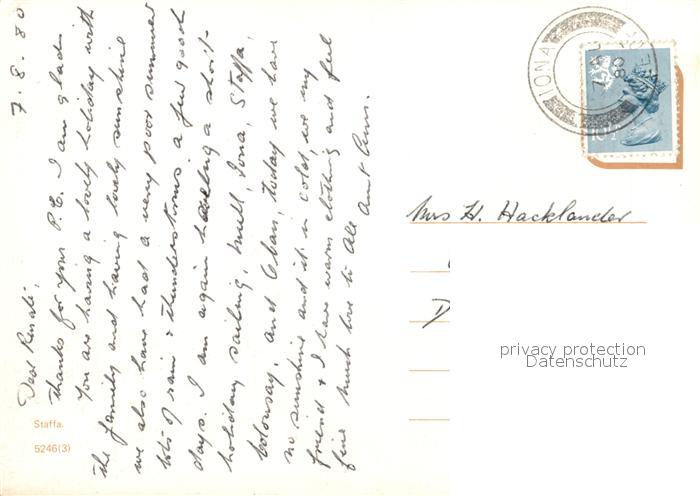 7.8.80
Dear Renate,
thanks for your P.C. I am glad
you are having a lovely holiday with
the family and having lovely sunshine
we also have had a very poor summer
lots of rain & thunderstorms a few good
days. I am again having a short
holiday sailing, Mull, Iona, Staffa,
Colonsay, and Oban, today we have
no sunshine and it is cold, we my
friend & I have warm clothing and feel
fine much love to all Aunt Anni.
Staffa.
5246(3)
IONA
10½
Mrs H. Hacklander
privacy protection
Datenschutz